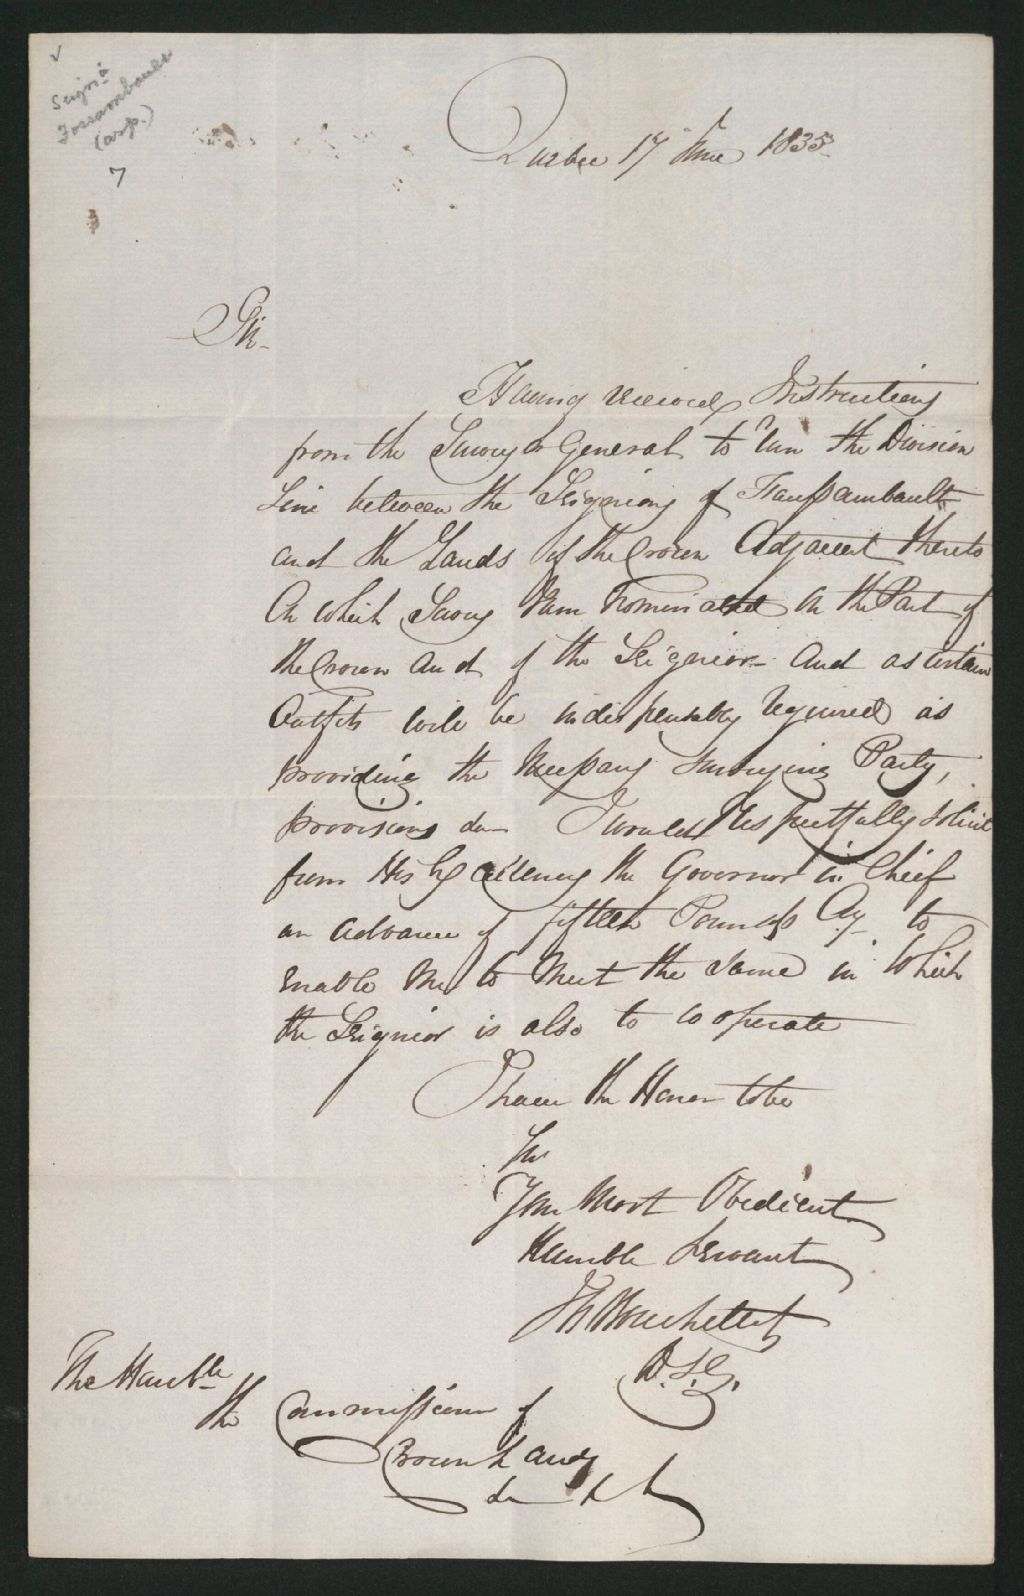 Seign^ie
Fossambault
(arp.)
7
Quebec 17 June 1835
Sir
Having received Instructions
from the Survey^or General to run the Division
Line between the Seigniory of Faussambault
and the Lands of the Crown Adjacent thereto
On which Survey I am Nominated on the Part of
the Crown and of the Seignior and as certain
Outfits will be indispensably required as
providing the Necessary Surveying Party,
provisions &c I would Respectfully solicit
from His Excellency the Governor in Chief
an advance of fifteen Pounds Cy to
enable me to meet the same in which
the Seignior is also to cooperate
I have the Honor to be
Sir
Your Most Obedient
Humble Servant
Bouchette
D.S.G.
The Hon^ble
the Commissioner of
Crown Lands
&c &c &c